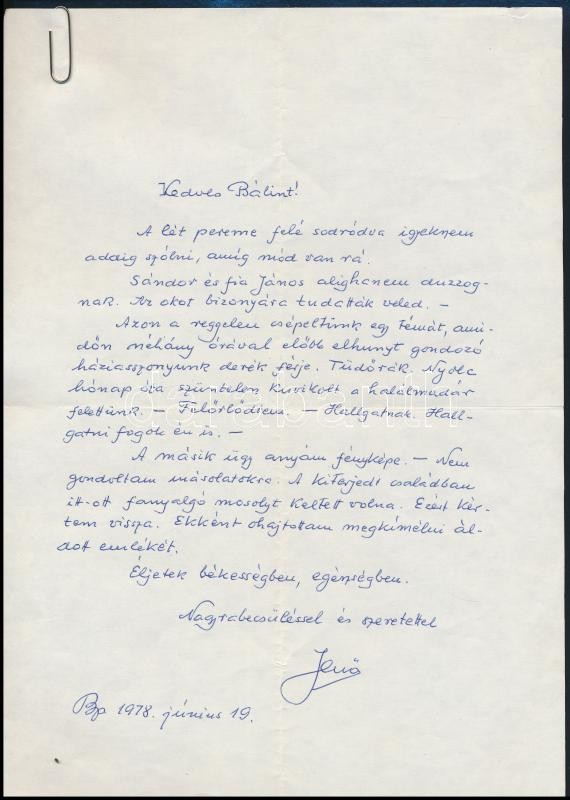 Kedves Bálint!
A lét pereme felé sodródva igyekszem
addig szólni, amíg mód van rá.
Sándor és fia János alighanem duzzog-
nak. Az okot bizonyára tudatták veled. –
Azon a reggelen csépeltünk egy témát, ami-
dőn néhány órával előbb elhunyt gondozó
háziasszonyunk derék férje. Tüdőrák. Nyolc
hónap óta szüntelen kuvikolt a halálmadár
felettünk. – Felőrlődtem. – Hallgatnak. Hall-
gatni fogok én is. –
A másik ügy anyám fényképe. – Nem
gondoltam másolatokra. A kiterjedt családban
itt-ott fanyalgó mosolyt keltett volna. Ezért kér-
tem vissza. Ekként óhajtottam megkímélni ál-
dott emlékét.
Éljetek békességben, egészségben.
Nagyrabecsüléssel és szeretettel
Jenő
Bp 1978. június 19.
darabanth